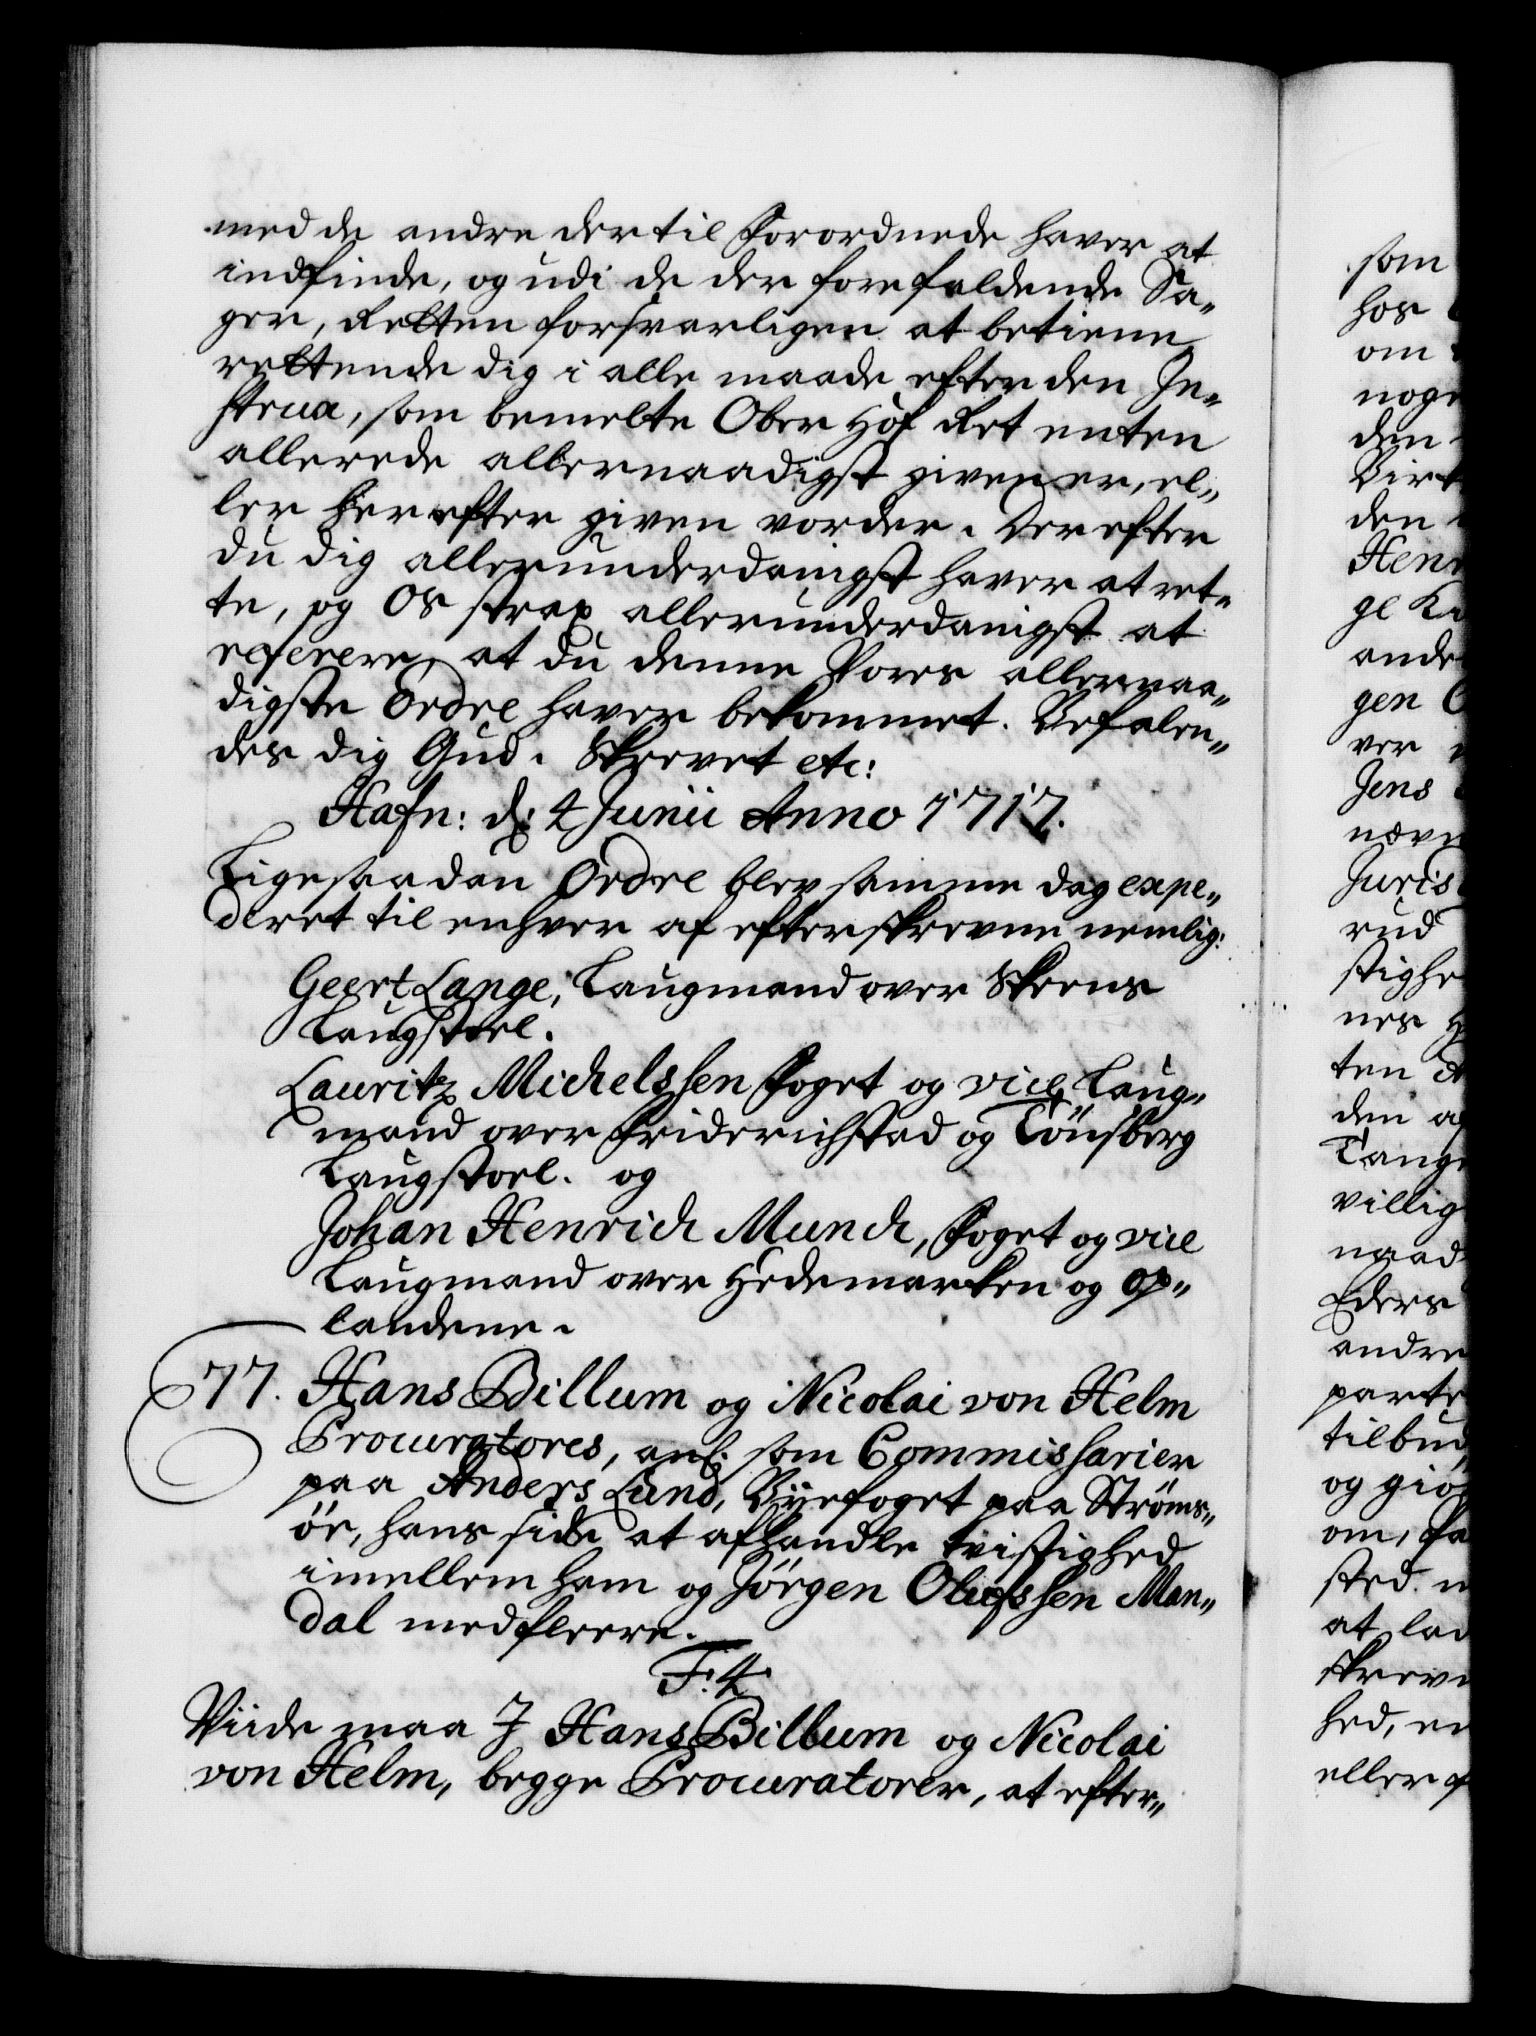 med de andre dertil forordnede haver at
indfinde, og udi de der forefaldende Sa„
ger, Retten forsvarligen at betiene,
rettende dig i alle maade efter den In„
strux, som bemelte Ober Hof Ret enten
allerede allernaadigst given er, el„
ler herefter given vorder. Derefter
du dig allerunderdanigst haver at ret„
te, og Os strax allerunderdanigst at
referere, at du denne Vores allernaa„
digste Ordre haver bekommet. Befalen„
des dig Gud. Skrevet etc:
Hafn: d: 4 Junii Anno 1717.
Ligesaadan Ordre blev samme dag expe„
deret til enhver af efterskrevne nemlig:
Geert Lange, Laugmand over Skeens
Laugstoel.
Lauritz Michelssen Foget og vice Laug„
mand over Friderichstad og Tönsberg
Laugstoel. og
Johan Henrich Munch, Foget og vice
Laugmand over Hedemarken og Op„
landene.
77. Hans Billum og Nicolai von Helm
Procuratores, anl: som Commissarier
paa Anders Lund, Byefoget paa Strøms„
öe, hans side at afhandle tvistighed
imellem ham og Jörgen Olufssen Man„
dal med fleere.
F: 4
Viide maa I Hans Billum og Nicolai
von Helm, begge Procuratorer, at efter„
som
hos
om
noge
den
Birk
den
Henr
ge
ande
gen
ver
Jens
næv
Juris
rud
stighe
nes
ten
den af
Tange
villig
naad
Eders
andre
parte
tilbud
og giö
om, Pa
sted
at lad
skreve
hed, en
eller af